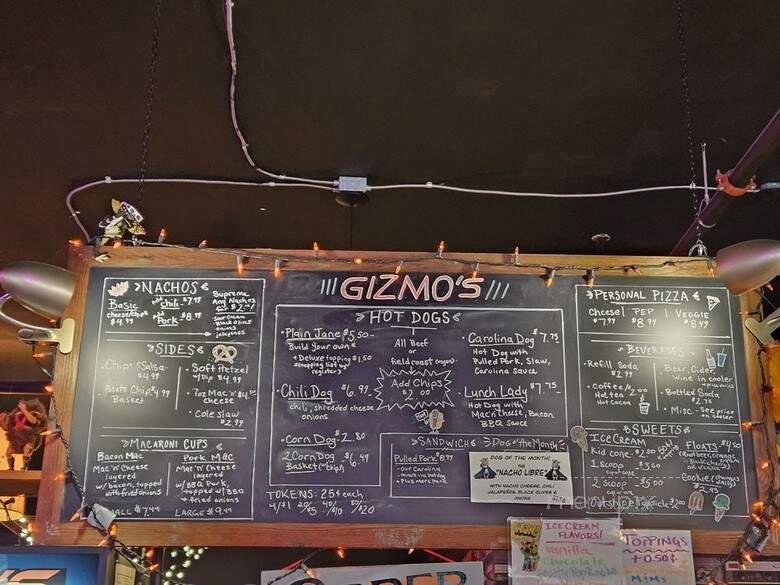 GIZMO'S
NACHOS
Basic
cheese/chips
$4.99
Chili $7.99
Pork $8.99
Supreme
Any Nachos
Sour Cream
Black Olives
onions
jalapeños
SIDES
Chips Salsa
$4.99
Potato Chips $4.99
Basket
Soft Pretzel
w/Dip $4.99
7oz Mac 'n' Cheese
Cole slaw
$2.99
MACARONI CUPS
Bacon Mac
Mac 'n' Cheese
layered
w/ bacon, topped
with fried onions
Pork Mac
Mac 'n' Cheese
layered
w/ BBQ Pork,
topped w/ BBQ
+ fried onions
SMALL $7.49
LARGE $9.49
HOT DOGS
Plain Jane $5.50
Build your own
+ Deluxe topping $1.50
register
All Beef
or
field roast (vegan)
Add Chips
$2.00
Chili Dog $6.99
chili, shredded cheese
onions
Corn Dog 2.80
2 Corn Dog $6.49
Basket (+chips)
Carolina Dog $7.75
Hot Dog with
Pulled Pork, Slaw,
Carolina sauce
Lunch Lady $7.75
Hot Dog with
Mac n cheese, Bacon
BBQ sauce
SANDWICH
Pulled Pork $8.99
- our Carolina
- minus the hot dog
+ Plus more Pork
Dog of the Month!
DOG OF THE MONTH!
"NACHO LIBRE"
WITH NACHO CHEESE, CHILI
JALAPEÑOS, BLACK OLIVES &
ONIONS
TOKENS: 25¢ each
4/$1 20/$5 40/$10 80/$20
PERSONAL PIZZA
Cheese
$7.99
PEP
$8.99
VEGGIE
$8.49
BEVERAGES
Refill Soda
$2.99
Coffee
Hot tea
Hot Cocoa
Beer, Cider,
Wine in cooler
Bottled Soda
$2.75
Misc - See price
on cooler
SWEETS
ICE CREAM
Kid cone
1 scoop $3.50
2 scoop
FLOATS $4.50
(Root beer, orange
or vanilla)
Cookie
$2.25
ICE CREAM
FLAVORS!
Vanilla
Chocolate
TOPPINGS
+0.50¢
M&Ms